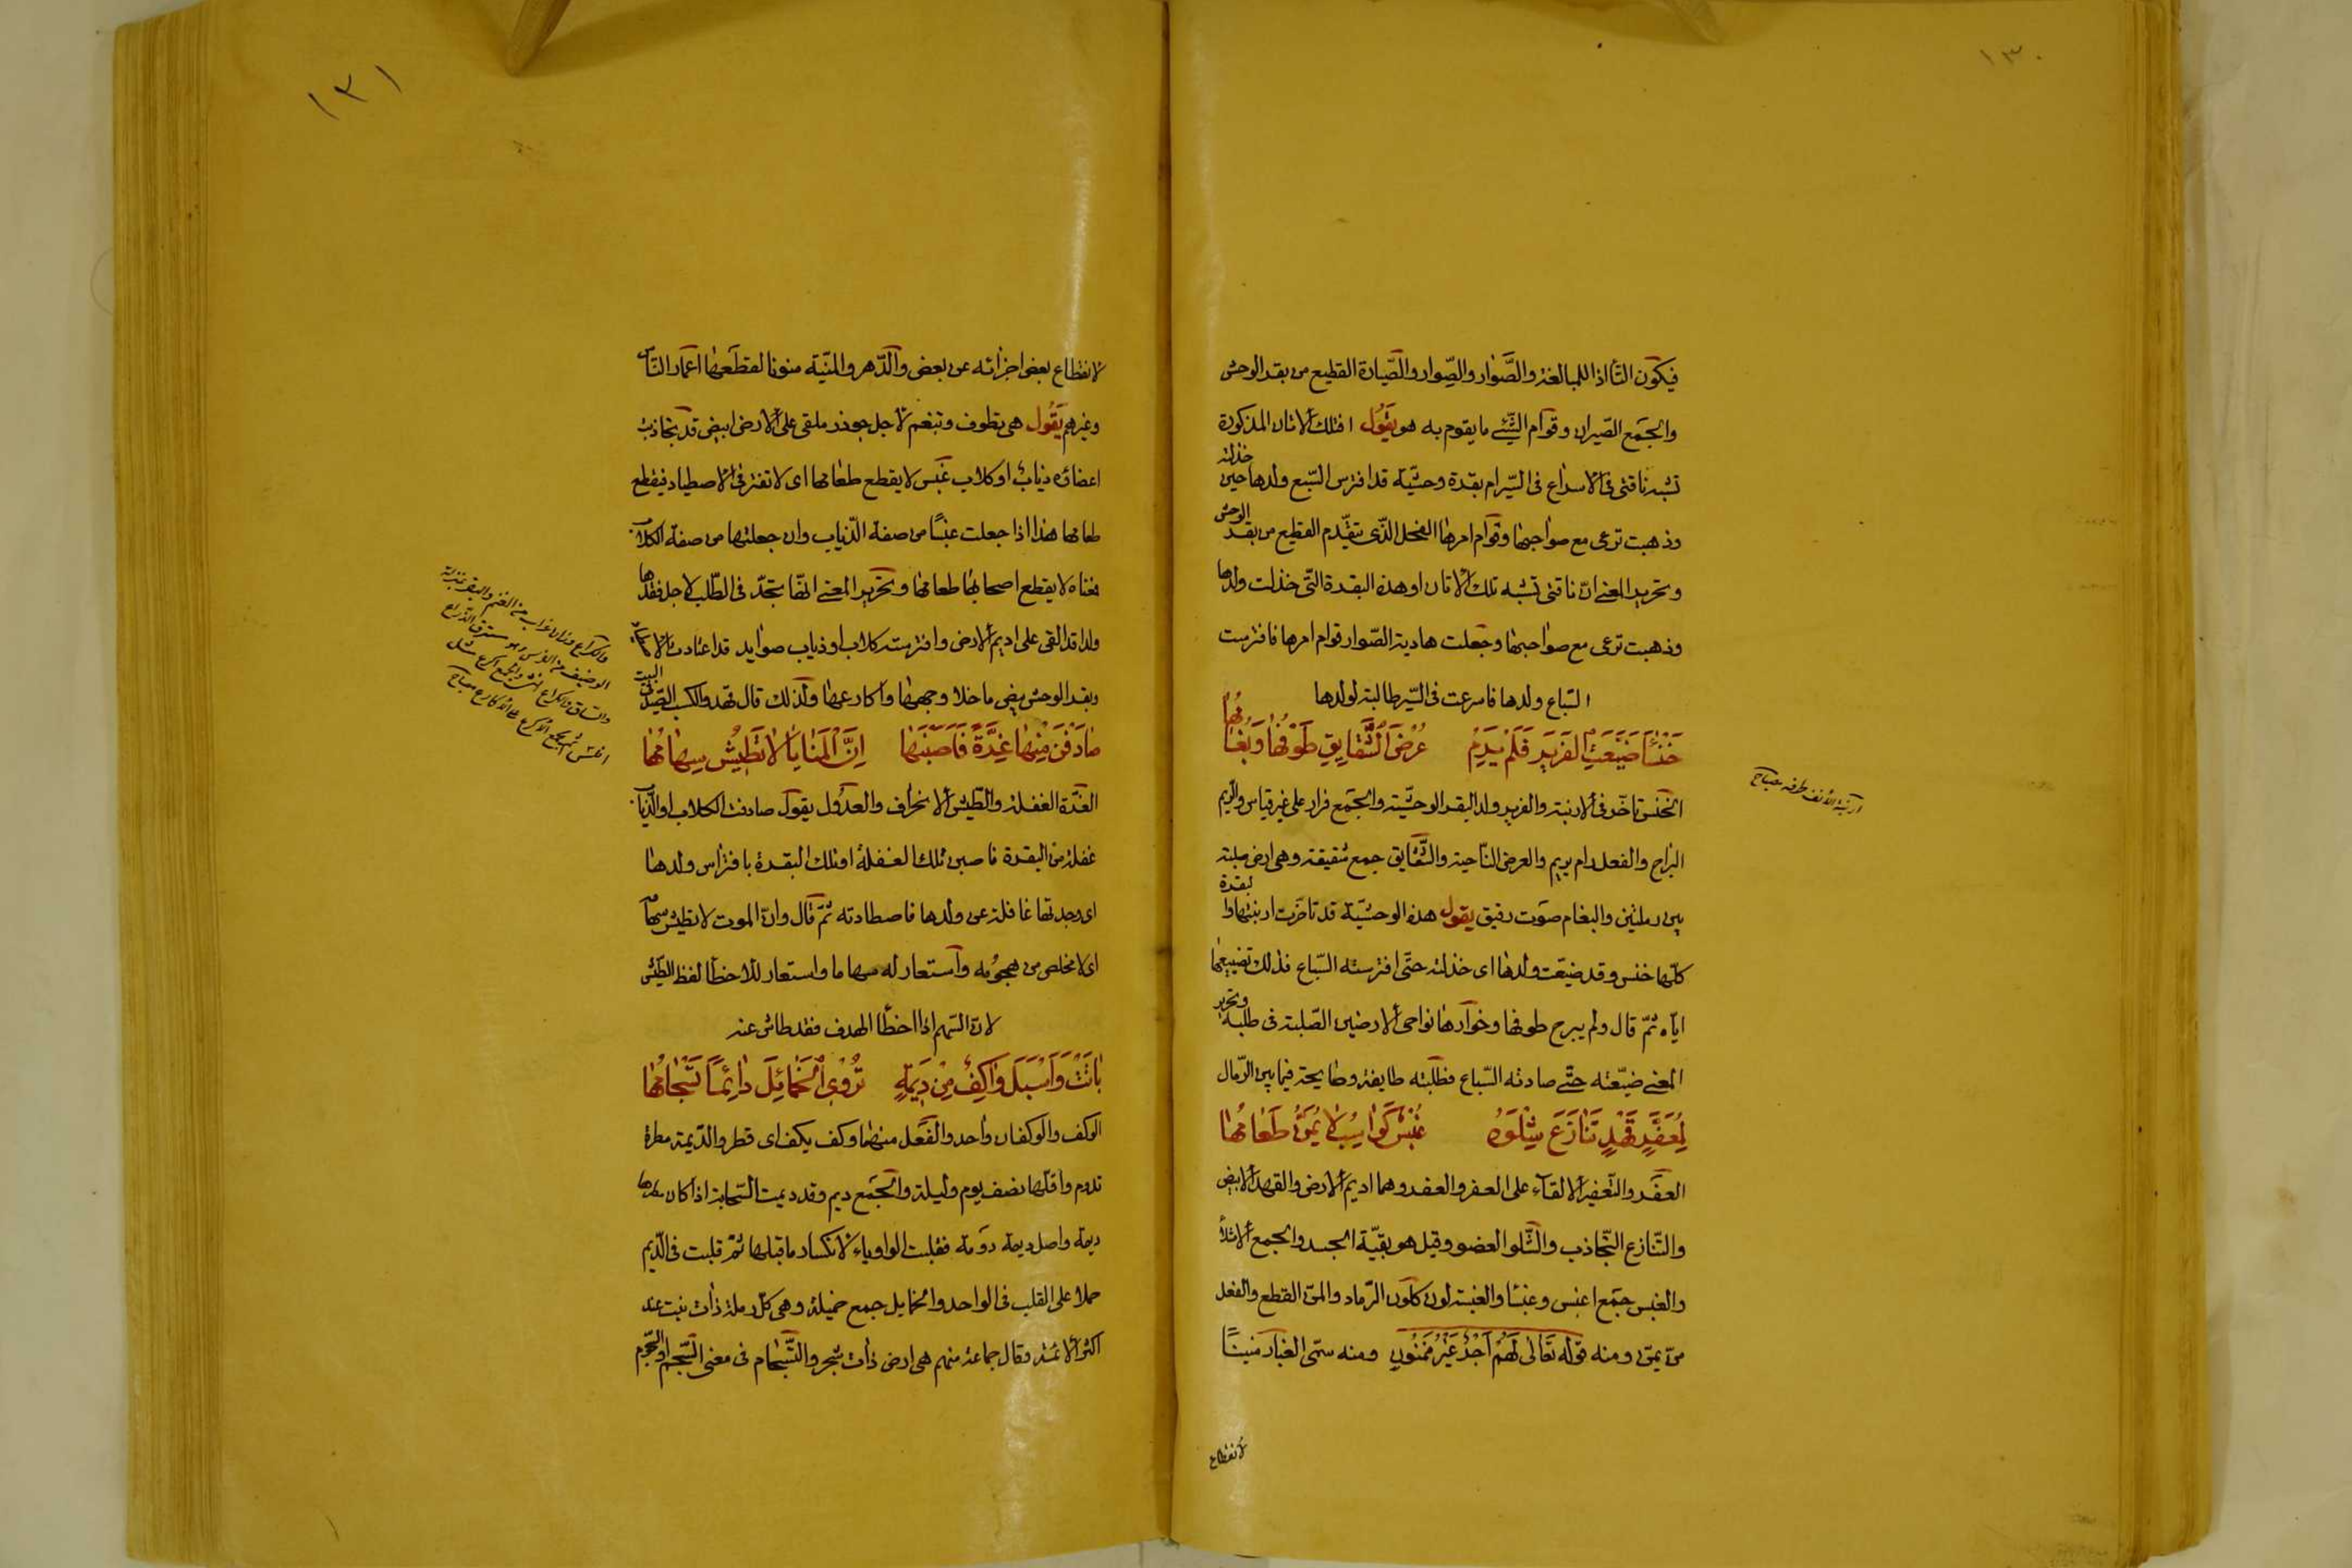 ١٣٠
فيكون التأ اذا للمبالغة والصَّوار والصِّوار والصّيارة القطيع من بقر الوحش
والجمع الصّيران وقوام الشّئ ما يقوم به هو يَقُول افتلك الاتان المذكورة
تشبه ناقتى فى الاسراع فى السّير ام بقرة وحشيّة قد افترس السّبع ولدها حين خذلته
وذهبت ترعى مع صواحبها وقوام امرها الفحل الذّى يتقدّم القطيع من بقر الوحش
وتحرير المعنى انّ ناقتى تشبه تلك الاتان او هذه البقرة التّى خذلت ولدها
وذهبت ترعى مع صواحبها وجعلت هادية الصّوار قوام امرها فافترست
السّباع ولدها فاسرعت فى السّير طالبة لولدها
خَنْسَاءُ ضَيَّعَتِ الفَرِيرَ فَلَمْ يَرِمْ عُرْضَ الشَّقَايِقِ طَوْفُهَا وَبُغَامُهَا
الخنس تاخّر فى الارنبة والفرير ولد البقر الوحشيّة والجمع فرار على غير قياس والرّيم
البراح والفعل رام يريم والعرض النّاحية والشّقايق جمع شقيقة وهى ارض صلبة
بين رملتين والبغام صوت رقيق يقول هذه الوحشيّة قد تاخّرت ارنبتها والبقرة
كلّها خنس وقد ضيّعت ولدها اى خذلته حتّى افترسته السّباع فذلك تضييعها
ايّاه ثمّ قال ولم يبرح طوفها وخوارها نواحى الارضين الصّلبة فى طلبه وتحرير
المعنى ضيّعته حتّى صادته السّباع فطلبته طايفة وصايحة فيما بين الرّمال
لِمُعَفَّرٍ قَهْدٍ تَنَازَعَ شِلْوَهُ غُبْسٌ كَوَاسِبُ لَا يُمَنُّ طَعَامُهَا
العفر والتّعفير الالقاء على العفر والعفر وهما اديم الارض والقهد الابيض
والتّنازع التّجاذب والشّلو العضو وقيل هو بقيّة الجسد والجمع الاشلاء
والغبس جمع اغبس وغبسا والغبسة لون كلون الرّماد والمنّ القطع والفعل
منّ يمنّ ومنه قوله تَعَالٰى لَهُمْ اَجْرٌ غَيْرُ مَمْنُونٍ ومنه سمّى الغبار منينًا
لانقطاع
ارنبة الانف طرفه مصباح
١٣١
لانقطاع بعض اجزائه عن بعض والدّهر والمنيّة منونا لقطعها اعمار النّاس
وغيرهم يَقُول هى تطوف وتبغم لاجل جوذر ملقى على الارض ابيض قد تجاذبت
اعضاؤه ذياب او كلاب غبس لا يقطع طعامها اى لا تفتر فى الاصطياد فيقطع
طعامها هذا اذا جعلت غبسًا من صفة الذّياب وان جعلتها من صفة الكلاب
فمعناه لا يقطع اصحابها طعامها وتحرير المعنى انّها تجدّ فى الطّلب لاجل فقدها
ولدا قد القى على اديم الارض وافترسته كلاب او ذياب صوايد قد اعتادت الاصطياد
وبقر الوحش بيض ما خلا وجهها واكارعها ولذلك قال قهد والكسب الصّيد فى البيت
صَادَفْنَ مِنْهَا غِرَّةً فَاَصَبْنَهَا اِنَّ الْمَنَايَا لَا تَطِيْشُ سِهَامُهَا
الغرّة الغفلة والطّيش الانحراف والعدول يقول صادفت الكلاب او الذّياب
غفلة من البقرة فاصبن تلك الغفلة او تلك البقرة بافتراس ولدها
اى وجدتها غافلة عن ولدها فاصطادته ثمّ قال وانّ الموت لا تطيش سهامه
اى لا مخلص من هجومه واستعار له سهاما واستعار للاخطا لفظ الطّيش
لانّ السّهم اذا اخطأ الهدف فقد طاش عنه
بَاتَتْ وَاَسْبَلَ وَاكِفٌ مِنْ دِيمَةٍ تُرْوِى الْخَمَائِلَ دَائِمًا تَسْجَامُهَا
الوكف والوكفان واحد والفعل منهما وكف يكف اى قطر والدّيمة مطرة
تدوم واقلّها نصف يوم وليلة والجمع ديم وقد ديمت السّحابة اذا كان مطرها
ديمة واصل ديمة دومة فقلبت الواو ياء لانكسار ما قبلها ثمّ قلبت فى الدّيم
حملا على القلب فى الواحد والخمايل جمع خميلة وهى كلّ رملة ذات نبت عند
اكثر الائمّة وقال جماعة منهم هى ارض ذات شجر والتّسجام فى معنى السّجم او السّجوم
والكراع وزان غراب من الغنم والبقر بمنزلة
الوظيف من الفرس وهو مستدق الذراع
والساق والكراع انثى والجمع اكرع مثل
افلس ثم يجمع الاكرع على الاكارع مصباح